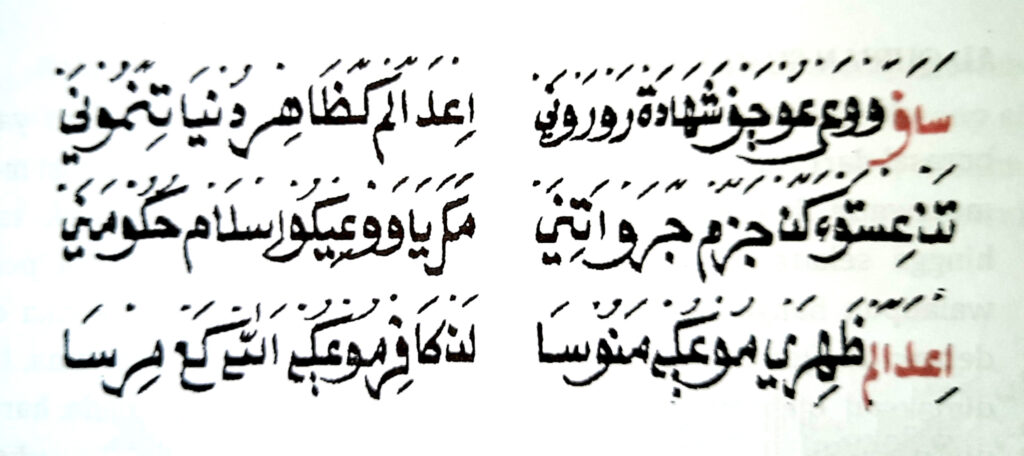 ساف ووڠ ڠوجف شهادة روروني اِڠدالم كظاهر دنيا تِنموني
تن ڠستوءكن جزم جرو اتني مكريا ووڠ ايكو اسلام حكومني
اِڠدالم ظهري موڠكي منوسا لن كافر موڠكي الله كڠ مرسا